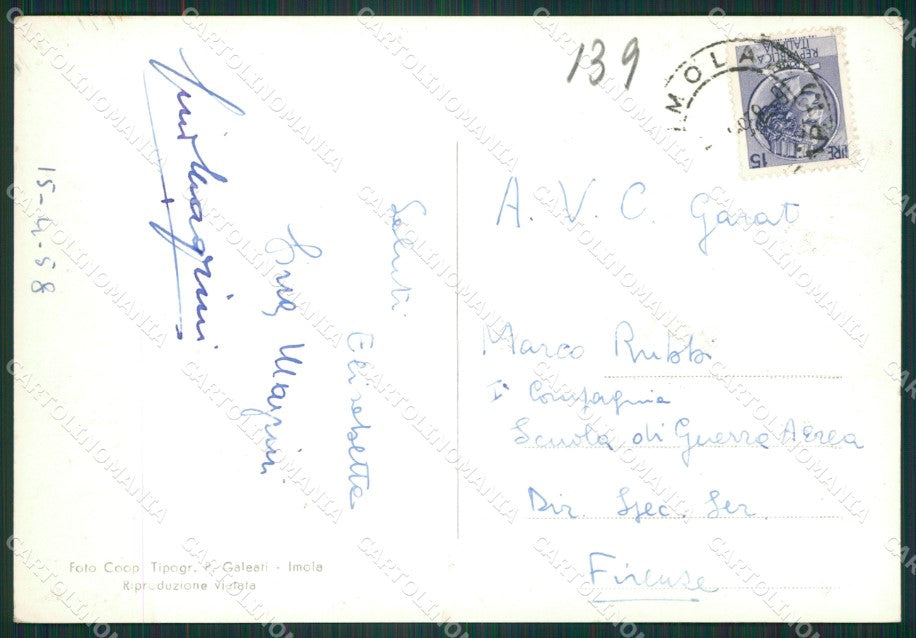 139
IMOLA
REPUBBLICA
ITALIANA
LIRE
15
A. V. C. Garat
Marco Rubbi
I° Compagnia
Scuola di Guerra Aerea
Dir. Spec. Ser.
Firenze
Saluti
Elisabetta
Magrini
Magrini
85-4-51
Foto Coop. Tipogr. P. Galeati - Imola
Riproduzione vietata
CARTOLINOMANIA